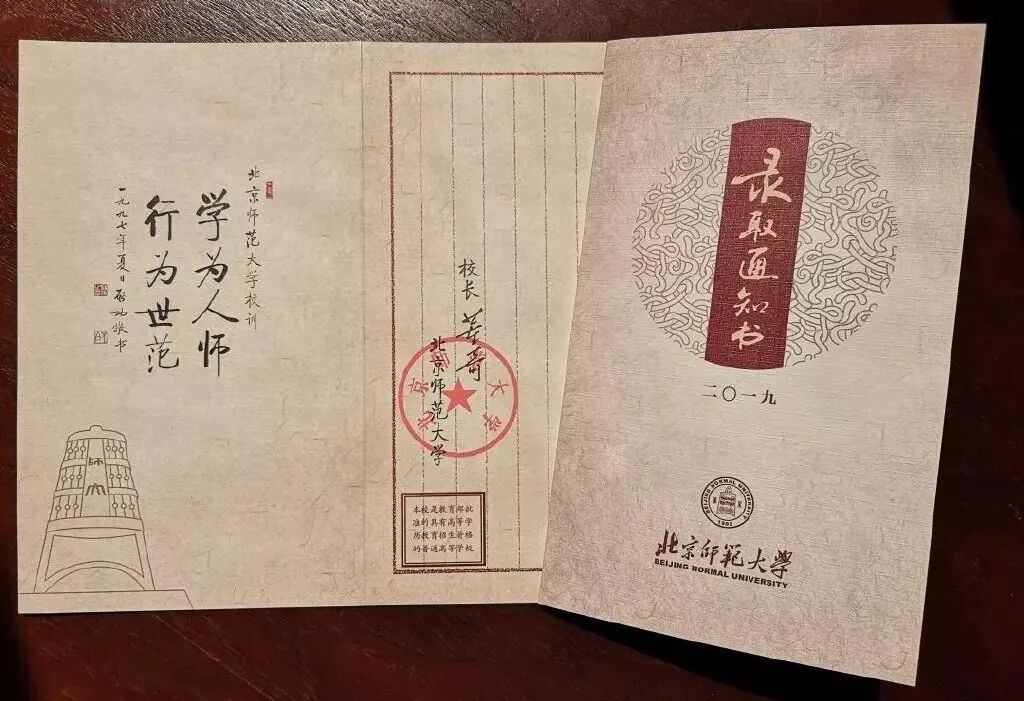 北京师范大学校训
学为人师
行为世范
一九九七年夏日启功敬书
師大
校长 董奇
北京师范大学
本校是教育部批
准的具有高等学
历教育招生资格
的普通高等学校
录取通知书
二〇一九
BEIJING NORMAL UNIVERSITY
1902
北京师范大學
BEIJING NORMAL UNIVERSITY